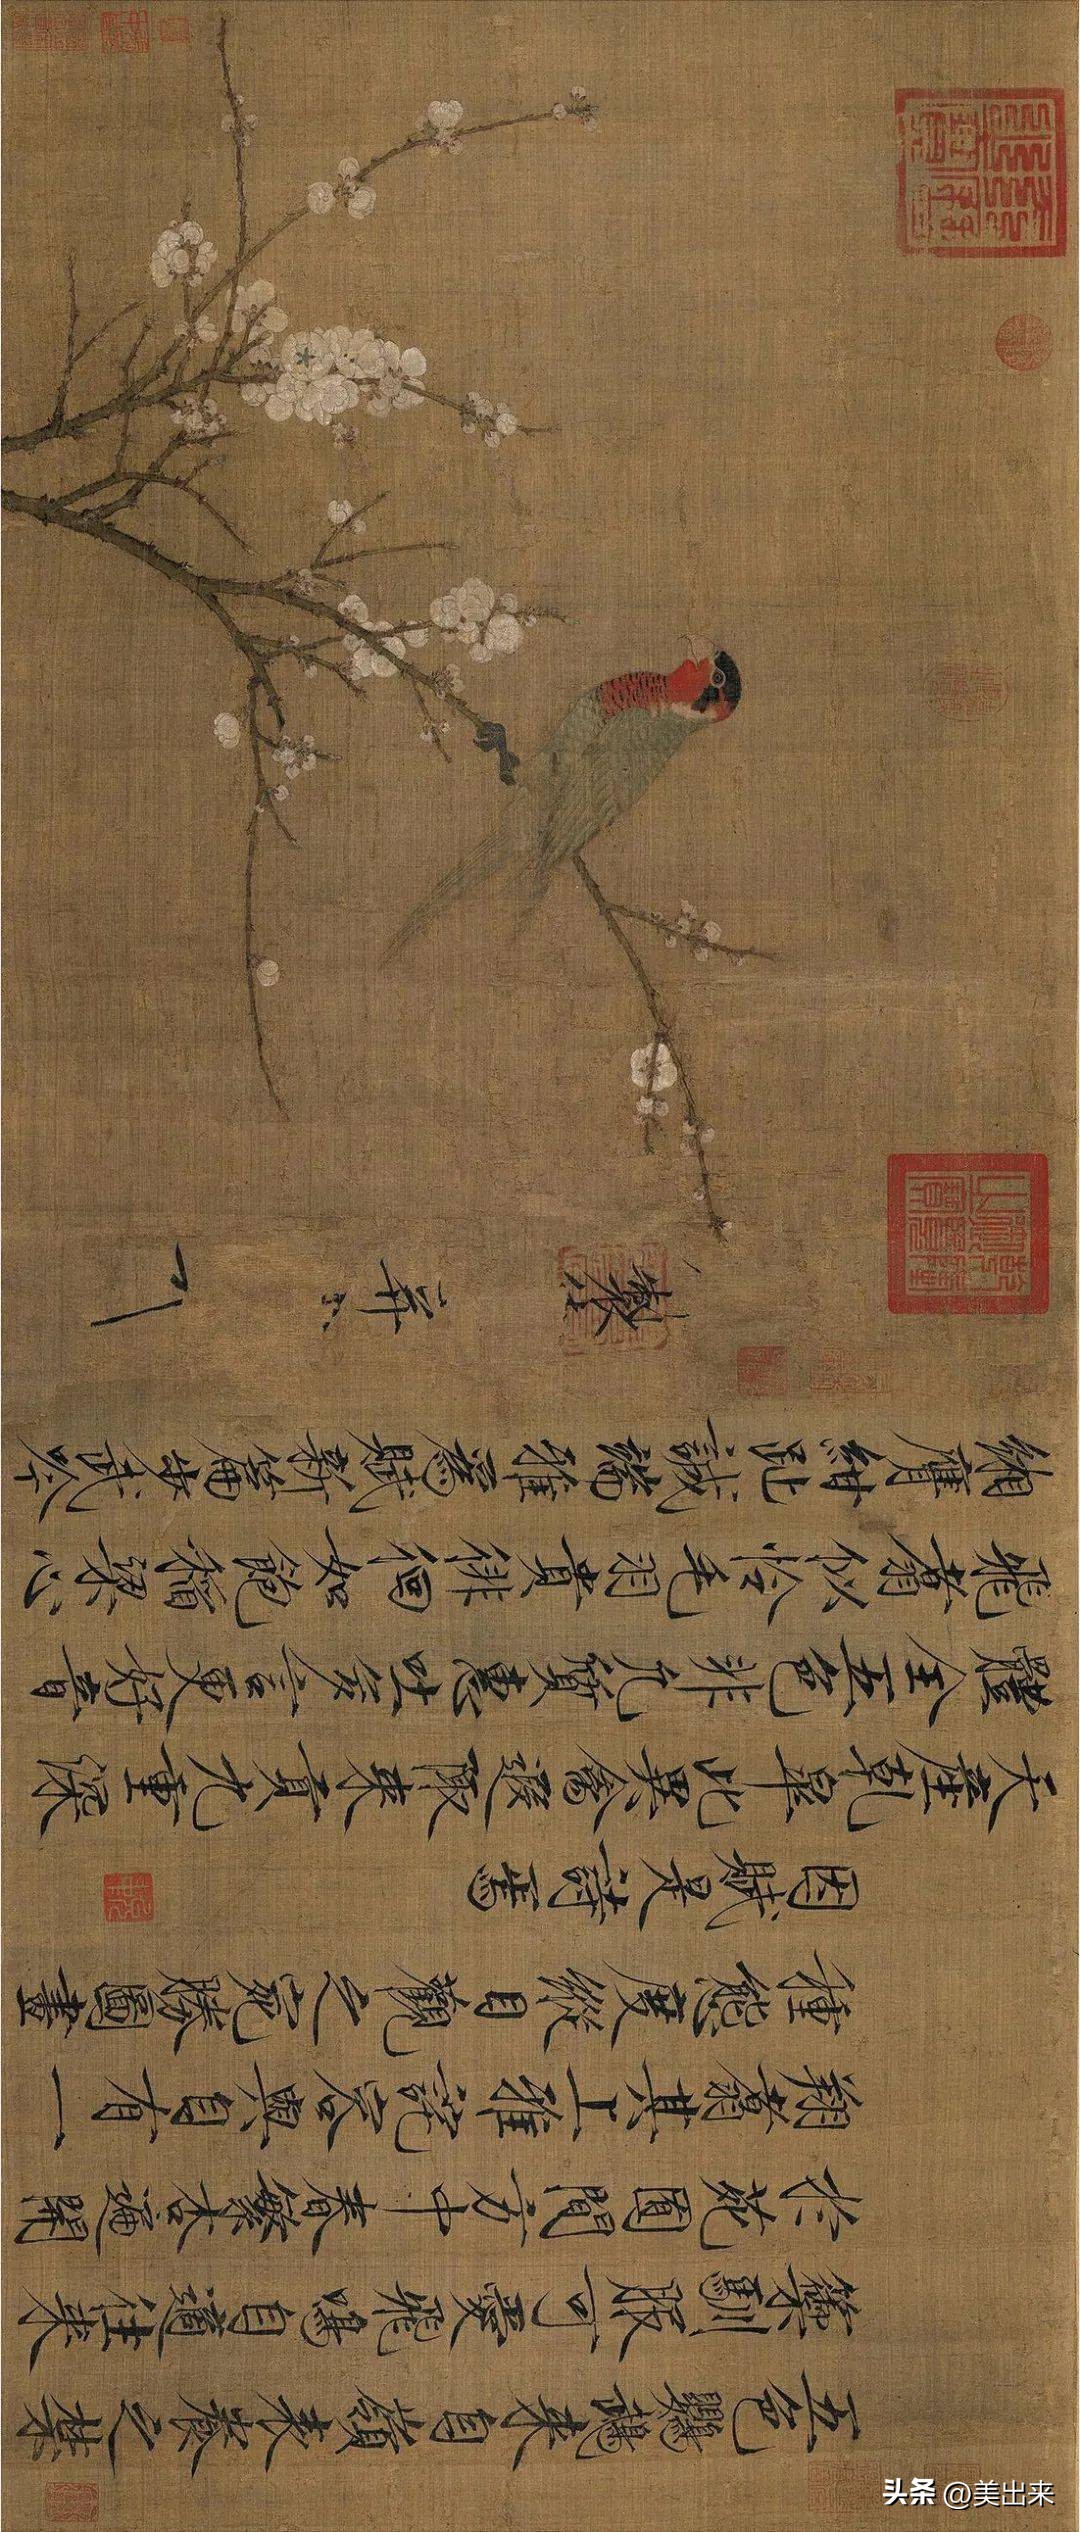 五色鸚鵡來自嶺表養之禁
籞馴服可愛飛鳴自適往來
於苑囿間方中春繁杏遍開
翔翥其上雅詫容與自有一
種態度縱目觀之宛勝圖畫
因賦是詩焉
天產乾皋此異禽遐陬來貢九重深
體全五色非凡質惠吐多言更好音
飛翥似憐毛羽貴徘徊如飽稻粱心
緗膺紺趾誠端雅為賦新篇步武吟
製 并
头条 @美出来